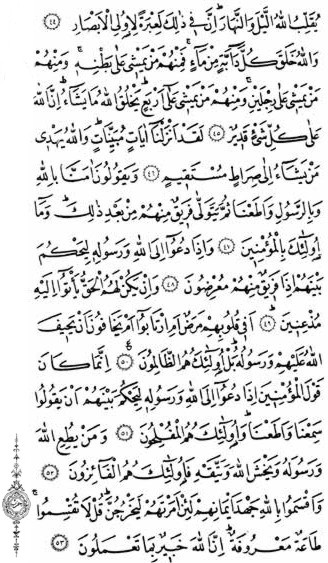 يُقَلِّبُ اللّٰهُ الَّيْلَ وَالنَّهَارَ اِنَّ فٖي ذٰلِكَ لَعِبْرَةً لِاُولِي الْاَبْصَارِ ﴿٤٤﴾
وَاللّٰهُ خَلَقَ كُلَّ دَابَّةٍ مِنْ مَاءٍ فَمِنْهُمْ مَنْ يَمْشٖي عَلٰى بَطْنِهٖ وَمِنْهُمْ
مَنْ يَمْشٖي عَلٰى رِجْلَيْنِ وَمِنْهُمْ مَنْ يَمْشٖي عَلٰى اَرْبَعٍ يَخْلُقُ اللّٰهُ مَا يَشَاءُ اِنَّ اللّٰهَ
عَلٰى كُلِّ شَيْءٍ قَدٖيرٌ ﴿٤٥﴾ لَقَدْ اَنْزَلْنَا اٰيَاتٍ مُبَيِّنَاتٍ وَاللّٰهُ يَهْدٖي
مَنْ يَشَاءُ اِلٰى صِرَاطٍ مُسْتَقٖيمٍ ﴿٤٦﴾ وَيَقُولُونَ اٰمَنَّا بِاللّٰهِ
وَبِالرَّسُولِ وَاَطَعْنَا ثُمَّ يَتَوَلّٰى فَرٖيقٌ مِنْهُمْ مِنْ بَعْدِ ذٰلِكَ وَمَا
اُولٰئِكَ بِالْمُؤْمِنٖينَ ﴿٤٧﴾ وَاِذَا دُعُوا اِلَى اللّٰهِ وَرَسُولِهٖ لِيَحْكُمَ
بَيْنَهُمْ اِذَا فَرٖيقٌ مِنْهُمْ مُعْرِضُونَ ﴿٤٨﴾ وَاِنْ يَكُنْ لَهُمُ الْحَقُّ يَأْتُوا اِلَيْهِ
مُذْعِنٖينَ ﴿٤٩﴾ اَفٖي قُلُوبِهِمْ مَرَضٌ اَمِ ارْتَابُوا اَمْ يَخَافُونَ اَنْ يَحٖيفَ
اللّٰهُ عَلَيْهِمْ وَرَسُولُهُ بَلْ اُولٰئِكَ هُمُ الظَّالِمُونَ ﴿٥٠﴾ اِنَّمَا كَانَ
قَوْلَ الْمُؤْمِنٖينَ اِذَا دُعُوا اِلَى اللّٰهِ وَرَسُولِهٖ لِيَحْكُمَ بَيْنَهُمْ اَنْ يَقُولُوا
سَمِعْنَا وَاَطَعْنَا وَاُولٰئِكَ هُمُ الْمُفْلِحُونَ ﴿٥١﴾ وَمَنْ يُطِعِ اللّٰهَ
وَرَسُولَهُ وَيَخْشَ اللّٰهَ وَيَتَّقْهِ فَاُولٰئِكَ هُمُ الْفَائِزُونَ ﴿٥٢﴾
وَاَقْسَمُوا بِاللّٰهِ جَهْدَ اَيْمَانِهِمْ لَئِنْ اَمَرْتَهُمْ لَيَخْرُجُنَّ قُلْ لَا تُقْسِمُوا
طَاعَةٌ مَعْرُوفَةٌ اِنَّ اللّٰهَ خَبٖيرٌ بِمَا تَعْمَلُونَ ﴿٥٣﴾